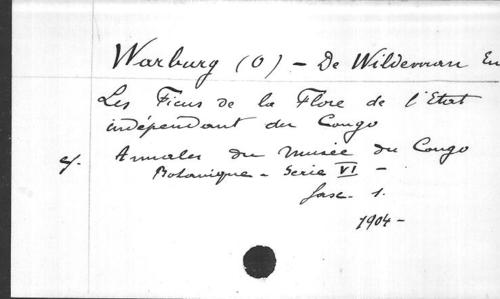 Warburg (O) - De Wildeman Em
Les Ficus de la Flore de l'Etat
indépendant du Congo
cf. Annales du Musée du Congo
Botanique - Serie VI -
fasc. 1.
1904 -